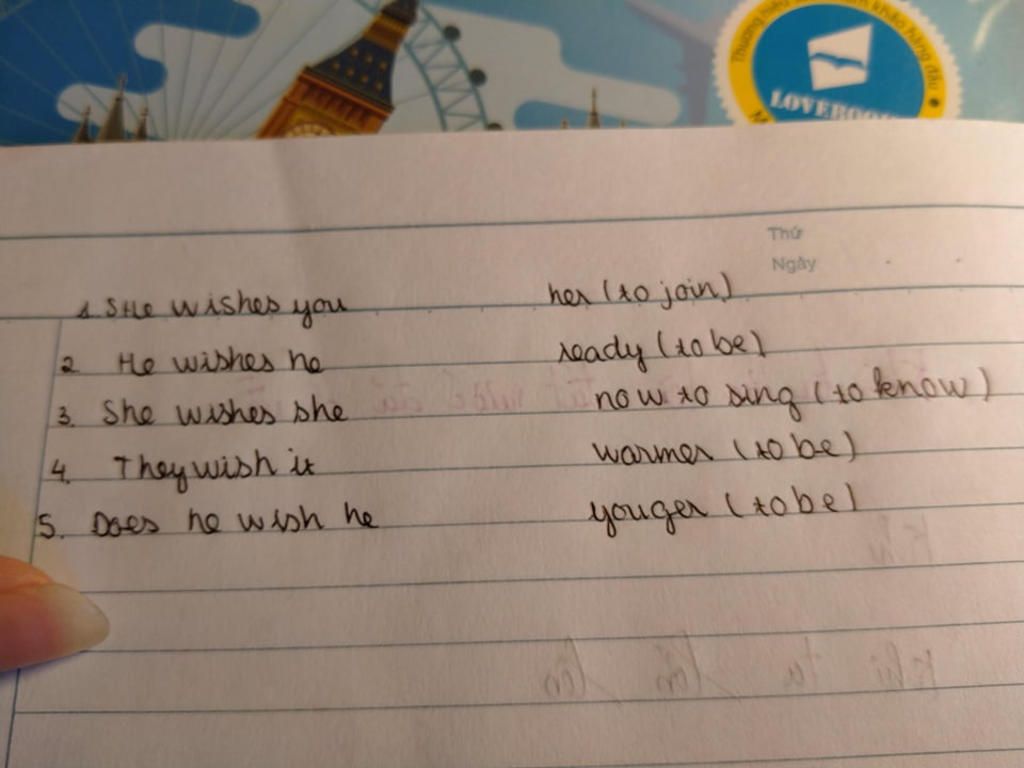 Thương hiệu
khảo hàng đầu
LOVEBOO
Thứ
Ngày
1. She wishes you her (to join)
2. He wishes he ready (to be)
3. She wishes she now to sing (to know)
4. They wish it warmer (to be)
5. Does he wish he youger (to be)